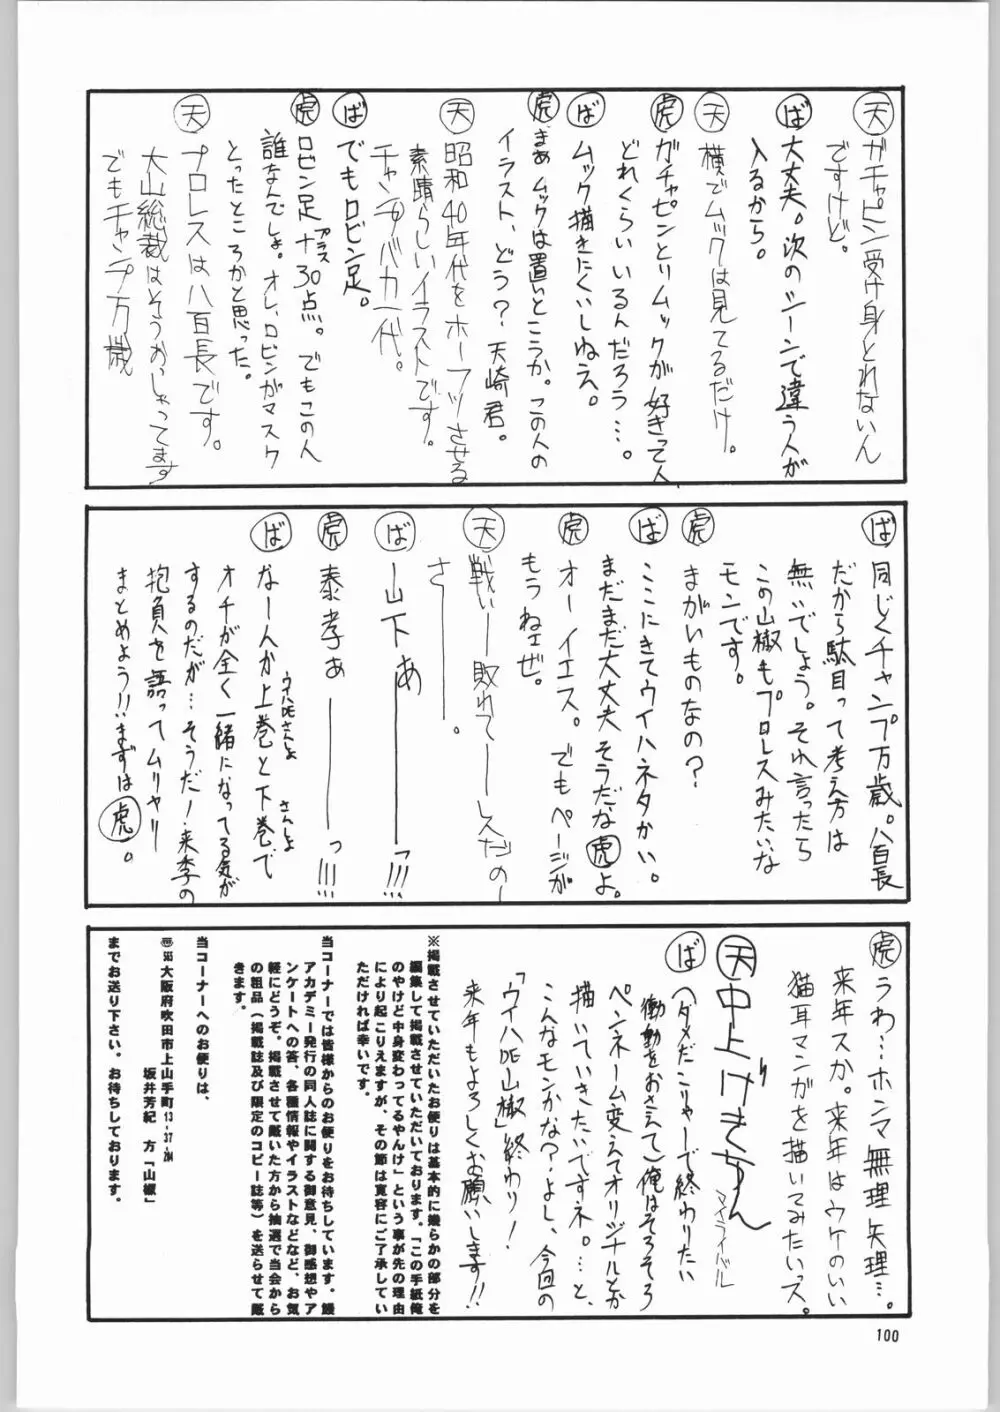 天 ガチャピン受け身とれないん
ですけど。
ば 大丈夫。次のシーンで違う人が
入るから。
天 横でムックは見てるだけ。
虎 ガチャピンとリムックが好きって人
どれくらいいるんだろう…。
ば ムック描きにくいしねえ。
虎 まあムックは置いとこうか。この人の
イラスト、どう?天崎君。
天 昭和40年代をホーフツさせる
素晴らしいイラストです。
チャンプバカ一代。
ば でもロビン足。
虎 ロビン足+30点。でもこの人
プラス
誰なんでしょ。オレ、ロビンがマスク
とったところかと思った。
天 プロレスは八百長です。
大山総裁はそうおっしゃってます
でもチャンプ万歳
ば 同じくチャンプ万歳。八百長
だから駄目って考え方は
無いでしょう。それ言ったら
この山椒もプロレスみたいな
モンです。
虎 まがいものなの?
ば ここにきてウイハネタかい。
まだまだ大丈夫そうだな虎よ。
虎 オーイエス。でもページが
もうねェぜ。
天 戦い――敗れて――レスだの―
さ―――。
ば ―山下ぁ―――っ!!!
虎 泰孝ぁ―――っ!!!
ば なーんか上巻と下巻で
ウイハDEさんしょ さんしょ
オチが全く一緒になってる気が
するのだが…そうだ!来季の
抱負を語ってムリヤリ
まとめよう!!まずは虎。
虎 うわ…ホンマ無理矢理…。
来年スか。来年はウケのいい
猫耳マンガを描いてみたいっス。
天 中上げきちん
マイライバル
ば (ダメだこりゃーで終わりたい
衝動をおさえて)俺はそろそろ
ペンネーム変えてオリジナルとか
描いていきたいですネ。…と、
こんなモンかな?よし、今回の
「ウイハDE山椒」終わり!
来年もよろしくお願いします!!
※掲載させていただいたお便りは基本的に幾らかの部分を
編集して掲載させていただいております。「この手紙俺
のやけど中身変わってるやんけ」という事が先の理由
により起こりえますが、その節は寛容にご了承してい
ただければ幸いです。
当コーナーでは皆様からのお便りをお待ちしています。鰻
アカデミー発行の同人誌に関する御意見、御感想やア
ンケートへの答、各種情報やイラストなどなど、お気
軽にどうぞ。掲載させて戴いた方から抽選で当会から
の粗品(掲載誌及び限定のコピー誌等)を送らせて戴
きます。
当コーナーへのお便りは、
〠565 大阪府吹田市上山手町13-37-204
坂井芳紀 方「山椒」
までお送り下さい。お待ちしております。
100